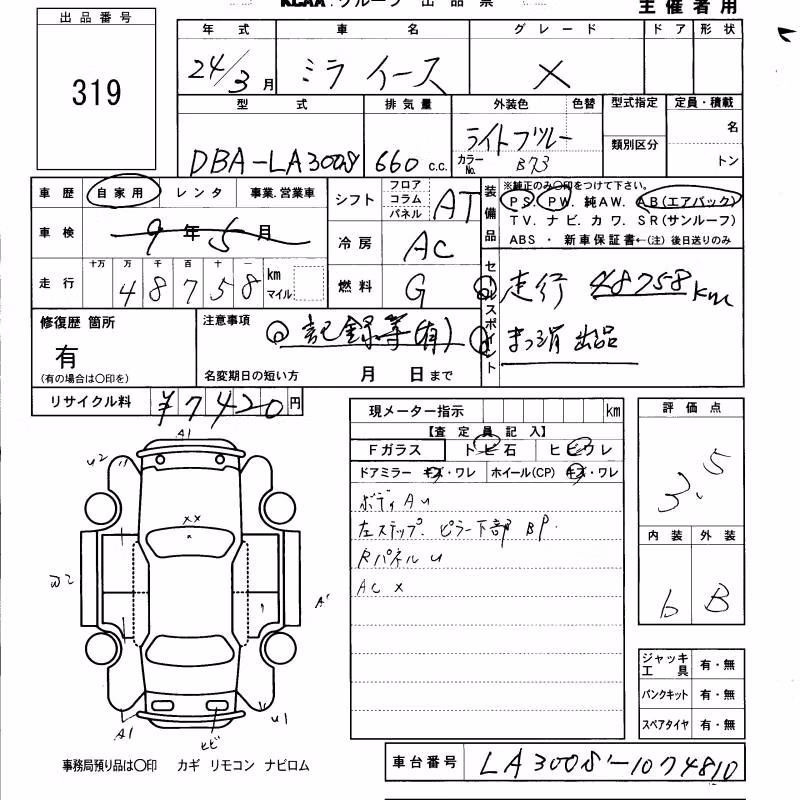 KCAA.グループ 出品票
主催者用
出品番号
319
年式 車名 グレード ドア 形状
24/3月 ミライース X
型式 排気量 外装色 色替 型式指定 定員・積載
DBA-LA300S 660 c.c. ライトブルー
カラーNo. B73
類別区分
名
トン
車歴 自家用 レンタ 事業.営業車
車検 9年5月
走行 十万 万 千 百 十 一
48758 km マイル
シフト フロア コラム パネル AT
冷房 AC
燃料 G
装備品
※純正のみ〇印をつけて下さい。
PS. PW. 純AW. AB(エアバック)
TV. ナビ. カワ. SR(サンルーフ)
ABS ・ 新車保証書←(注) 後日送りのみ
セールスポイント
走行 48758km
まっ消 出品
修復歴 箇所
有
(有の場合は〇印を)
注意事項
記録等(有)
名変期日の短い方 月 日まで
リサイクル料 ¥7420円
現メーター指示 km
【査定員記入】
Fガラス トビ石 ヒビワレ
ドアミラー キズ・ワレ ホイール(CP) キズ・ワレ
ボディAU
左ステップ. ピラー下部 BP.
Rパネル U
AC X
評価点
3.5
内装 外装
b B
ジャッキ工具 有・無
パンクキット 有・無
スペアタイヤ 有・無
A1
U2
XX
W2
A'
A1
ヒビ
U1
事務局預り品は〇印 カギ リモコン ナビロム
車台番号 LA300S-1074810